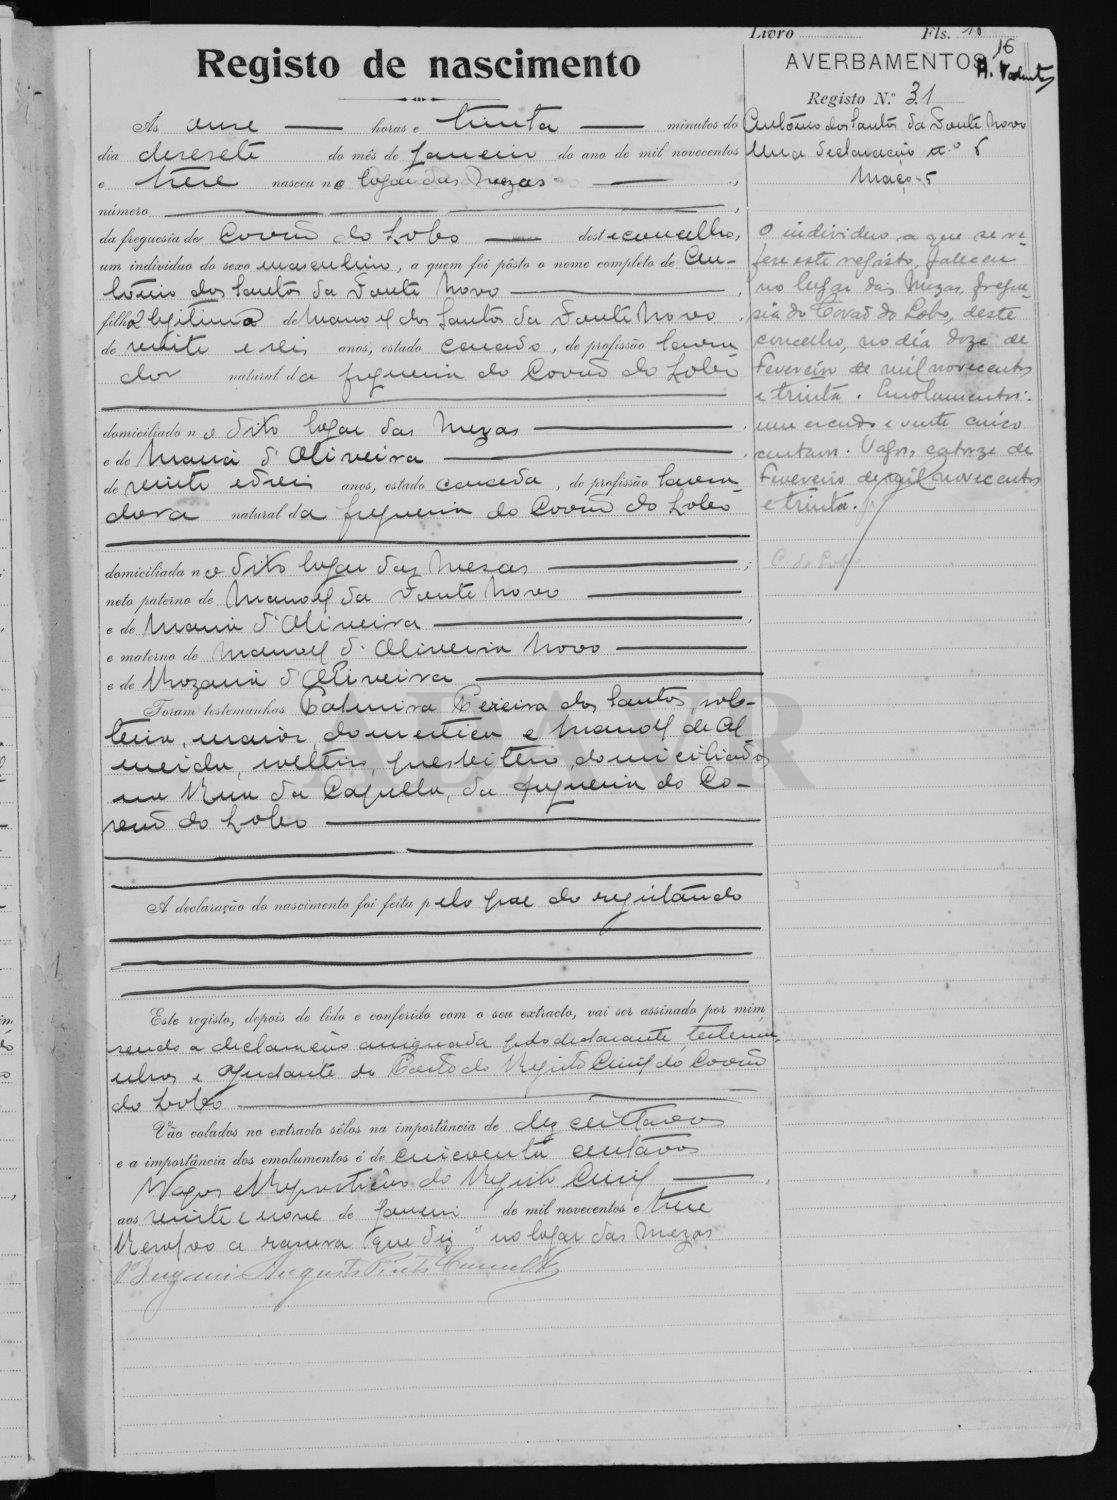 Livro Fls. 16
16
Registo de nascimento
AVERBAMENTOS
Registo N.º 31
António dos Santos da Fonte Novo
Uma declaração n.º 5
Maço 5
Às onze horas e trinta minutos do
dia desesete do mês de Janeiro do ano de mil novecentos
e treze nasceu no logar das Mezas ,
número ,
da freguesia de Covão do Lobo deste concelho,
um individuo do sexo masculino, a quem foi pôsto o nome completo de An-
tónio dos Santos da Fonte Novo ,
filho legitimo de Manoel dos Santos da Fonte Novo ,
de vinte e seis anos, estado casado, de profissão lavra
dor natural da freguesia do Covão do Lobo
domiciliado no dito logar das Mezas ,
e de Maria d'Oliveira ,
de vinte e seis anos, estado casada, de profissão lavra
dora natural da freguesia do Covão do Lobo
domiciliada no dito logar das Mezas ;
neto paterno de Manoel da Fonte Novo
e de Maria d'Oliveira ,
e materno de Manoel d'Oliveira Novo
e de Rozaria d'Oliveira
Foram testemunhas Palmira Pereira dos Santos, sol-
teira, maior, domestica e Manoel de Al-
meida, solteiro, presbitero, domiciliados
na Rua da Capella, da freguesia do Co-
vão do Lobo
A declaração do nascimento foi feita pelo pae do registando
Este registo, depois de lido e conferido com o seu extracto, vai ser assinado por mim
sendo a declaração assignada pelo declarante, testemu-
nhas e ajudante do Posto do Registo Civil do Covão
do Lobo
Vão colados no extracto sêlos na importância de dez centavos
e a importância dos emolumentos é de cincoenta centavos
Vagos e Repartição do Registo Civil ,
aos vinte e nove de Janeiro de mil novecentos e treze
Resalvo a rasura que diz "no logar das Mezas
O individuo a que se re-
fere este registo, faleceu
no lugar das Mezas, fregue-
sia do Covão do Lobo, deste
concelho, no dia doze de
Fevereiro de mil novecentos
e trinta. Emolumentos:
um escudo e vinte cinco
centavos. Vagos, catorze de
Fevereiro de mil novecentos
e trinta.
C. do Lobo
ADAVR